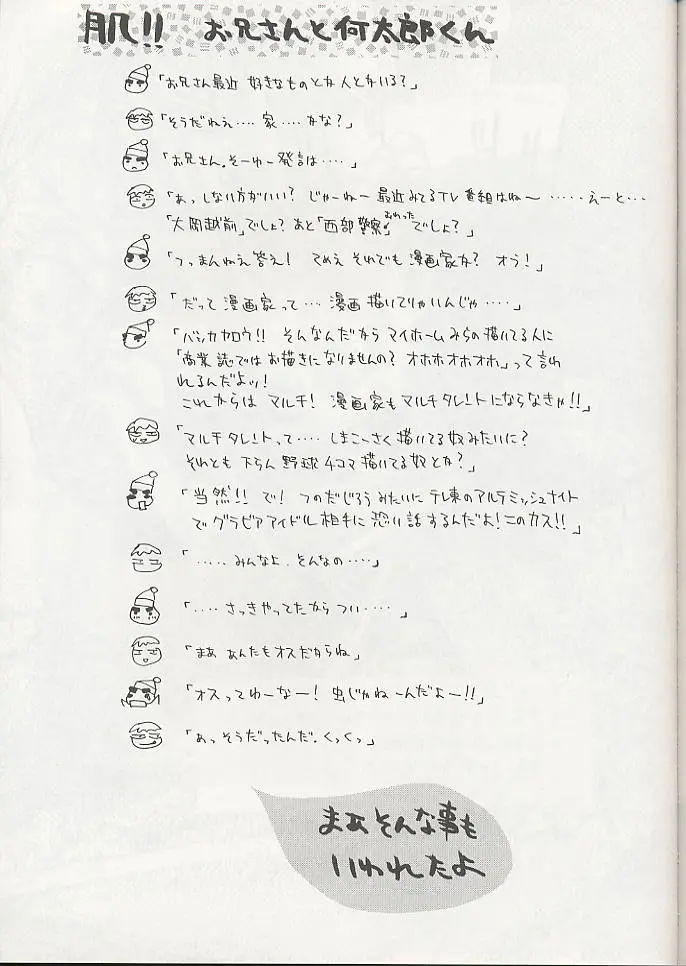 肌!! お兄さんと何太郎くん
「お兄さん最近 好きなものとか人とかいる?」
「そうだねえ‥‥ 家‥‥かな?」
「お兄さん.そーゆー発言は‥‥」
「あっ しない方がいい? じゃーねー 最近みてるTV番組はね〜 ‥‥‥えーと‥‥
「大岡越前」でしょ? あと「西部警察」でしょ?」
おわった
「つっまんねえ答え! てめえ それでも 漫画家か? オラ!」
「だって 漫画家って‥‥ 漫画 描いてりゃいんじゃ‥‥」
「バッカヤロウ!! そんなんだから マイホームみらの描いてる人に
「商業誌ではお描きになりませんの? オホホオホオホ」って言わ
れるんだよッ!
これからは マルチ! 漫画家も マルチタレントにならなきゃ!!」
「マルチタレントって‥‥ しまこーさく描いてる奴みたいに?
それとも 下らん 野球 4コマ 描いてる奴とか?」
「当然!! で! つのだじろうみたいに テレ東のアルテミッシュナイト
でグラビアアイドル相手に恐い話するんだよ!このカス!!」
「‥‥‥みんなよ.そんなの‥‥」
「‥‥ さっきやってたから つい‥‥ 」
「まあ あんたもオスだからね」
「オスってゆーなー! 虫じゃねーんだよー!!」
「あっ そうだったんだ.くっくっ」
まあそんな事も
いわれたよ